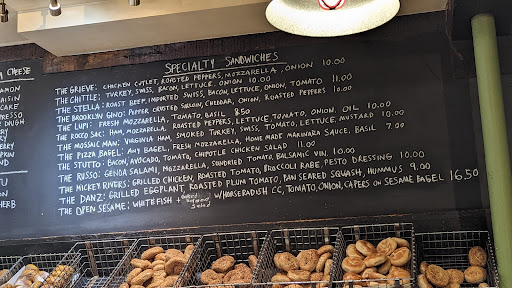 CHEESE
SPECIALTY SANDWICHES
THE GRIEVE: CHICKEN CUTLET, ROASTED PEPPERS, MOZZARELLA, ONION 10.00
THE CHITTLE: TURKEY, SWISS, BACON, LETTUCE, ONION 10.00
THE STELLA: ROAST BEEF, IMPORTED SWISS, BACON, LETTUCE, ONION, TOMATO 11.00
THE BROOKLYN GINO: PEPPER CRUSTED SIRLOIN, CHEDDAR, ONION, ROASTED PEPPERS 10.00
THE LUPI: FRESH MOZZARELLA, TOMATO, BASIL 8.50
THE ROCCO SAC: HAM, MOZZARELLA, ROASTED PEPPERS, LETTUCE, TOMATO, ONION, OIL 10.00
THE MOSAIC MAN: VIRGINIA HAM, SMOKED TURKEY, SWISS, TOMATO, LETTUCE, MUSTARD 10.00
THE PIZZA BAGEL: ANY BAGEL, FRESH MOZZARELLA, HOME MADE MARINARA SAUCE, BASIL 7.00
THE STUTTO: BACON, AVOCADO, TOMATO, CHIPOTLE CHICKEN SALAD 11.00
THE RUSSO: GENOA SALAMI, MOZZARELLA, SUNDRIED TOMATO, BALSAMIC VIN. 10.00
THE MICKEY RIVERS: GRILLED CHICKEN, ROASTED TOMATO, BROCCOLI RABE, PESTO DRESSING 10.00
THE DANZ: GRILLED EGGPLANT, ROASTED PLUM TOMATO, PAN SEARED SQUASH, HUMMUS 9.00
THE OPEN SESAME: WHITEFISH + BAKED SALMON SALAD W/HORSERADISH CC, TOMATO, ONION, CAPERS ON SESAME BAGEL 16.50